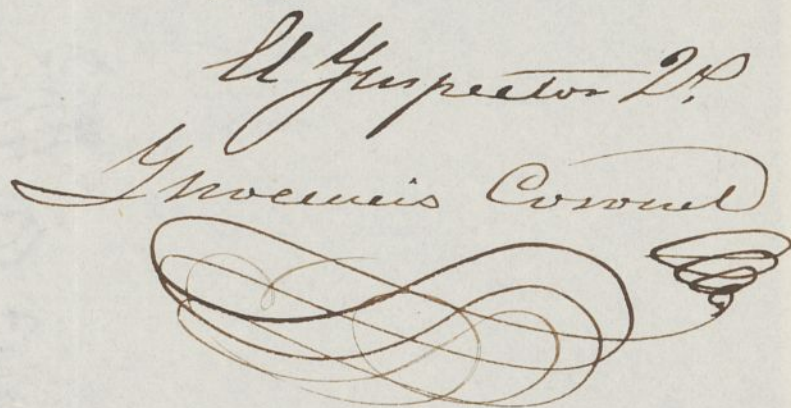 El Ynspector 2º
Ynocencio Coronel